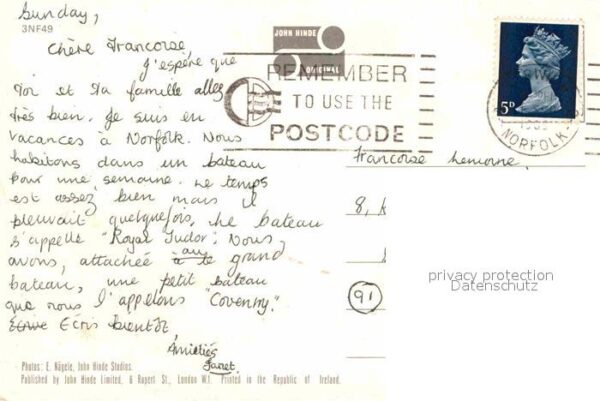 Sunday,
3NF49
Chère Francoise,
J'espère que
Toi et Ta famille allez
très bien. Je suis en
vacances à Norfolk. Nous
habitons dans un bateau
pour une semaine. Le temps
est assez bien mais il
pleuvait quelquefois. Le bateau
s'appelle "Royal Tudor". Nous
avons, attachée au grand
bateau, une petit bateau
que nous l'appelons "Coventry".
Ecris bientôt
Amitiés
Janet.
JOHN HINDE
ORIGINAL
REMEMBER
TO USE THE
POSTCODE
5D
NORFOLK
Francoise Lemoine.
8,
91
privacy protection
Datenschutz
Photos: E. Nägele, John Hinde Studios.
Published by John Hinde Limited, 6 Rupert St., London W.1. Printed in the Republic of Ireland.